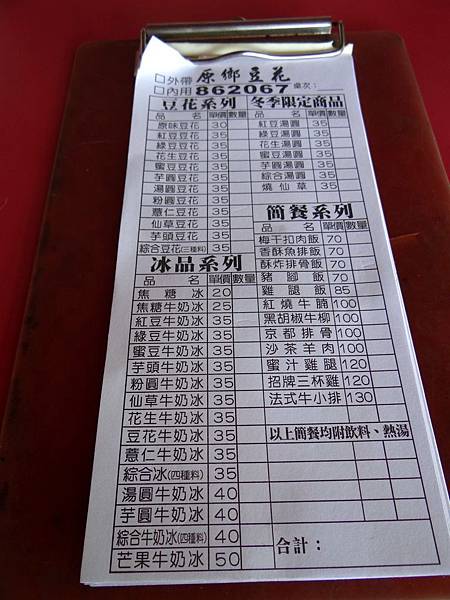 □外帶 原鄉豆花
□內用 862067 桌次：
豆花系列
品 名 單價 數量
原味豆花 30
紅豆豆花 35
綠豆豆花 35
花生豆花 35
蜜豆豆花 35
芋圓豆花 35
湯圓豆花 35
粉圓豆花 35
薏仁豆花 35
仙草豆花 35
芋頭豆花 35
綜合豆花(三種料) 35
冰品系列
品 名 單價 數量
焦糖冰 20
焦糖牛奶冰 25
紅豆牛奶冰 35
綠豆牛奶冰 35
蜜豆牛奶冰 35
芋頭牛奶冰 35
粉圓牛奶冰 35
仙草牛奶冰 35
花生牛奶冰 35
豆花牛奶冰 35
薏仁牛奶冰 35
綜合冰(四種料) 35
湯圓牛奶冰 40
芋圓牛奶冰 40
綜合牛奶冰(四種料) 40
芒果牛奶冰 50
冬季限定商品
品 名 單價 數量
紅豆湯圓 35
綠豆湯圓 35
花生湯圓 35
蜜豆湯圓 35
芋圓湯圓 35
綜合湯圓 35
燒仙草 35
簡餐系列
品 名 單價 數量
梅干扣肉飯 70
香酥魚排飯 70
酥炸排骨飯 70
豬腳飯 70
雞腿飯 85
紅燒牛腩 100
黑胡椒牛柳 100
京都排骨 100
沙茶羊肉 100
蜜汁雞腿 120
招牌三杯雞 120
法式牛小排 130
以上簡餐均附飲料、熱湯
合計：